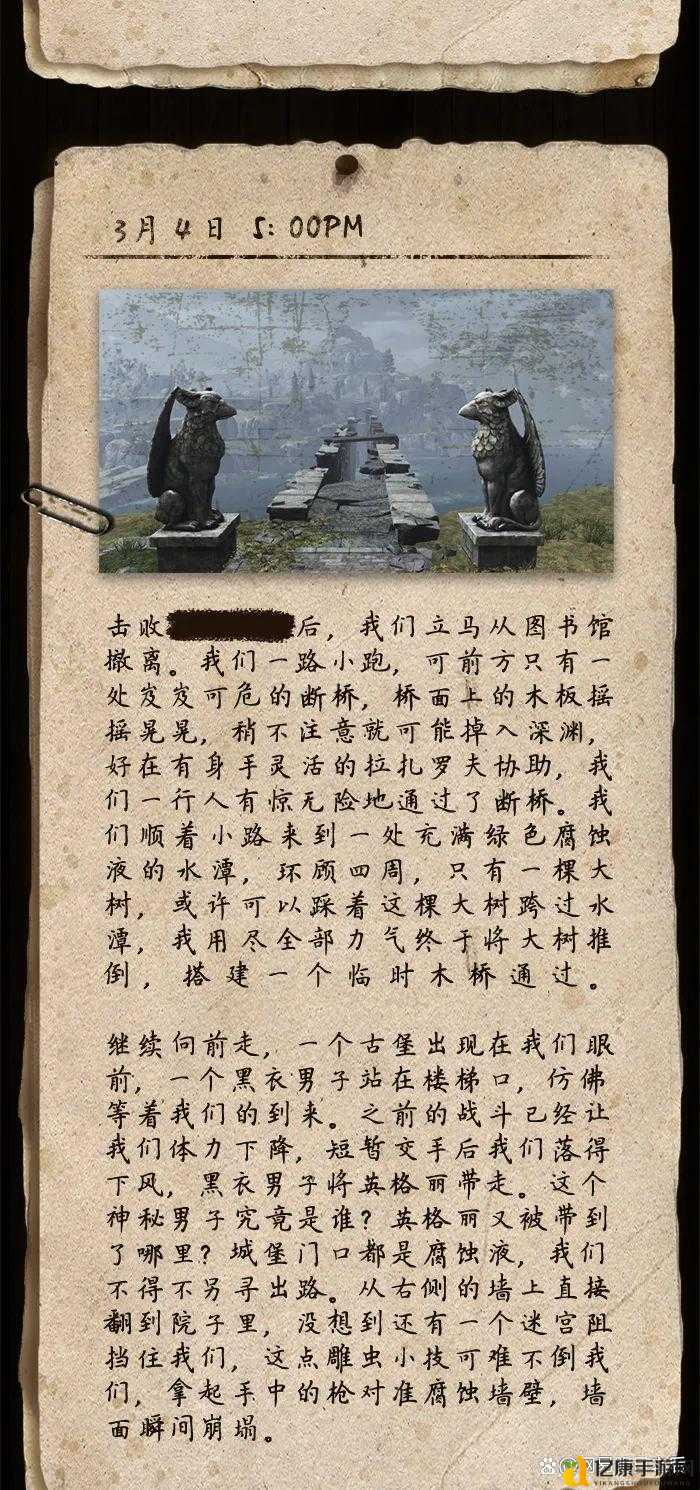 3月4日 5:00PM
击败后，我们立马从图书馆
撤离。我们一路小跑，可前方只有一
处岌岌可危的断桥，桥面上的木板摇
摇晃晃，稍不注意就可能掉入深渊，
好在有身手灵活的拉扎罗夫协助，我
们一行人有惊无险地通过了断桥。我
们顺着小路来到一处充满绿色腐蚀
液的水潭，环顾四周，只有一棵大
树，或许可以踩着这棵大树跨过水
潭，我用尽全部力气终于将大树推
倒，搭建一个临时木桥通过。
继续向前走，一个古堡出现在我们眼
前，一个黑衣男子站在楼梯口，仿佛
等着我们的到来。之前的战斗已经让
我们体力下降，短暂交手后我们落得
下风，黑衣男子将英格丽带走。这个
神秘男子究竟是谁？英格丽又被带到
了哪里？城堡门口都是腐蚀液，我们
不得不另寻出路。从右侧的墙上直接
翻到院子里，没想到还有一个迷宫阻
挡住我们，这点雕虫小技可难不倒我
们，拿起手中的枪对准腐蚀墙壁，墙
面瞬间崩塌。
亿康手游网
YIKANGSHOUYOUWANG